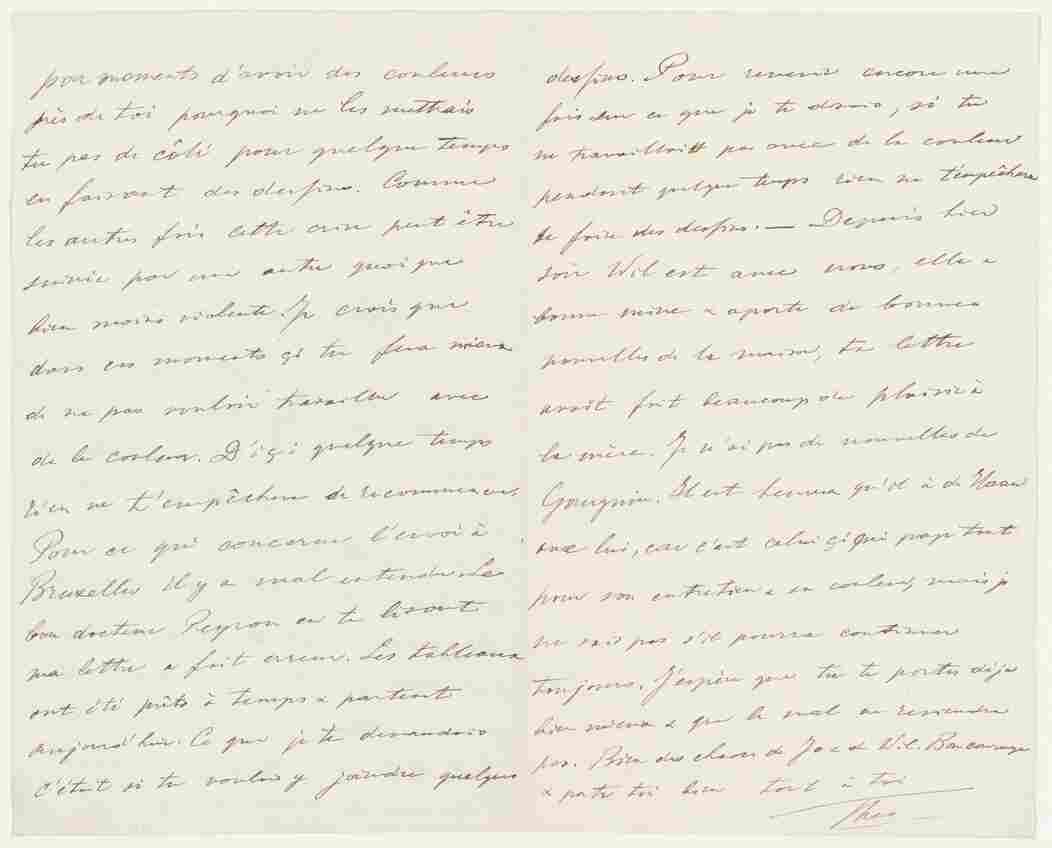 pour moments d'avoir des couleurs
près de toi pourquoi ne les mettrais
tu pas de côté pour quelque temps
en faisant des dessins. Comme
les autres fois cette crise peut être
suivie par une autre quoique
bien moins violente. Je crois que
dans ces moments çi tu fera mieux
de ne pas vouloir travailler avec
de la couleur. D'içi quelque temps
rien ne t'empêchera de recommencer.
Pour ce qui concerne l'envoi à
Bruxelles il y a mal entendu. Le
bon docteur Peyron en te lisant
ma lettre a fait erreur. Les tableaux
ont été prêts à temps & partent
aujourd'hui. Ce que je te demandais
c'était si tu voulais y joindre quelques
dessins. Pour revenir encore une
fois sur ce que je te disais, si tu
ne travaillait pas avec de la couleur
pendant quelque temps rien ne t'empêchera
de faire des dessins. — Depuis hier
soir Wil est avec nous, elle a
bonne mine & aporte de bonnes
nouvelles de la maison, ta lettre
avait fait beaucoup de plaisir à
la mère. Je n'ai pas de nouvelles de
Gauguin. Il est heureux qu'il a de Haan
avec lui, car c'est celui çi qui paye tout
pour son entretien & en couleurs, mais je
ne sais pas s'il pourra continuer
toujours. J'espère que tu te portes déja
bien mieux & que le mal ne reviendra
pas. Bien des choses de Jo & de Wil. Bon courage
& porte toi bien tout à toi
Theo